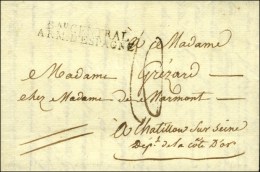 BAU GÉNÉRAL
ARM. D'ESPAGNE
A Madame
Madame Grézard
chez Madame de Marmont
à Chatillon sur Seine
Dépt. de la côte D'or